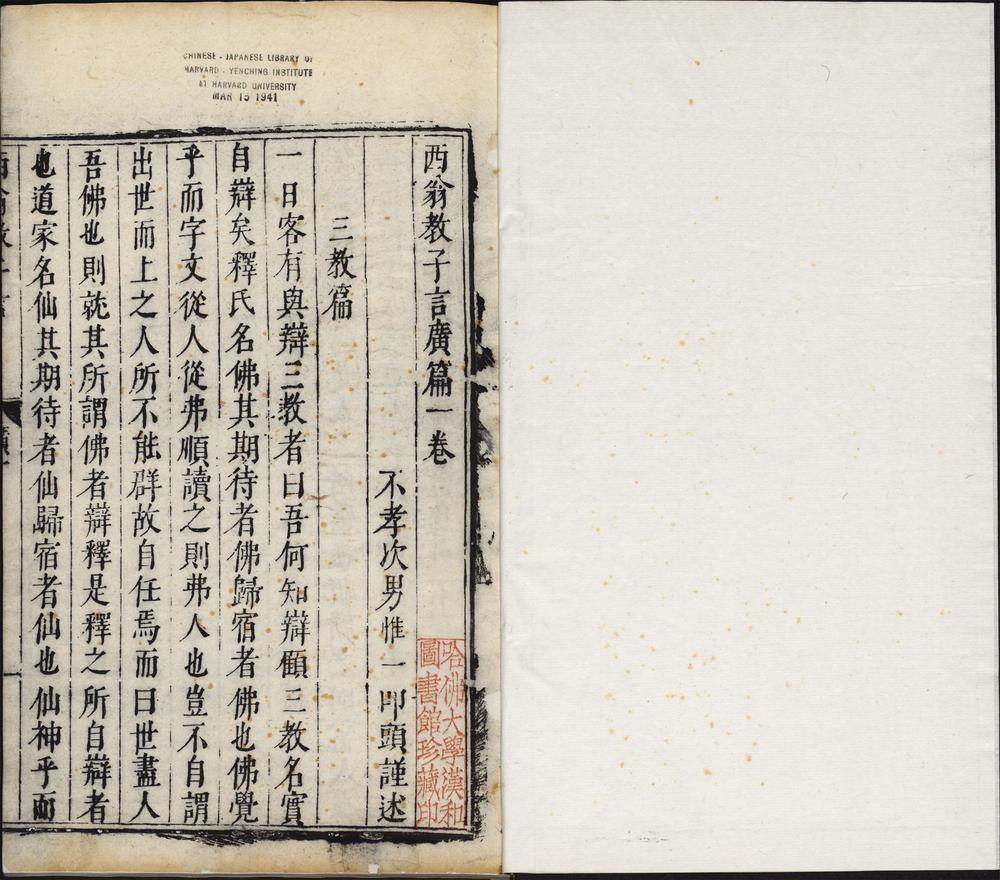 CHINESE - JAPANESE LIBRARY OF
HARVARD - YENCHING INSTITUTE
AT HARVARD UNIVERSITY
MAR 15 1941
西翁教子言廣篇一卷
不孝次男惟一叩頭謹述
三教篇
一日客有與辯三教者曰吾何知辯顧三教名實
自辯矣釋氏名佛其期待者佛歸宿者佛也佛覺
乎而字文從人從弗順讀之則弗人也豈不自謂
出世而上之人所不能群故自任焉而曰世盡人
吾佛也則就其所謂佛者辯釋是釋之所自辯者
也道家名仙其期待者仙歸宿者仙也仙神乎而
哈佛大學漢和
圖書館珍藏印